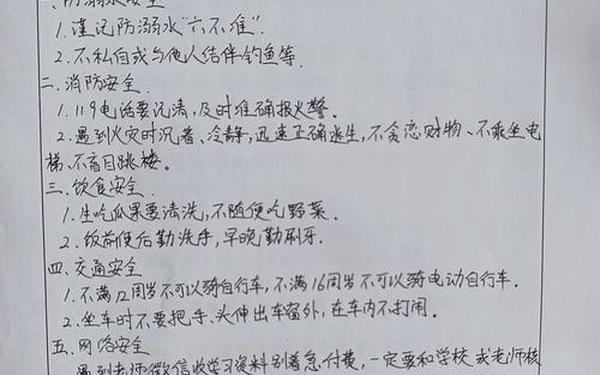 一、防溺水安全
1. 谨记防溺水"六不准".
2. 不私自或与他人结伴钓鱼等.
二. 消防安全.
1. 119电话要记清,及时准确报火警.
2. 遇到火灾时沉着、冷静,迅速正确逃生,不贪恋财物、不乘坐电
梯、不盲目跳楼.
三. 饮食安全.
1. 生吃瓜果要清洗,不随便吃野菜.
2. 饭前便后勤洗手,早晚勤刷牙.
四. 交通安全
1. 不满12周岁不可以骑自行车,不满16周岁不可以骑电动自行车.
2. 坐车时不要把手、头伸出车窗外,在车内不打闹.
五. 网络安全
遇到老师微信收学习资料别着急付费,一定要和学校或老师核